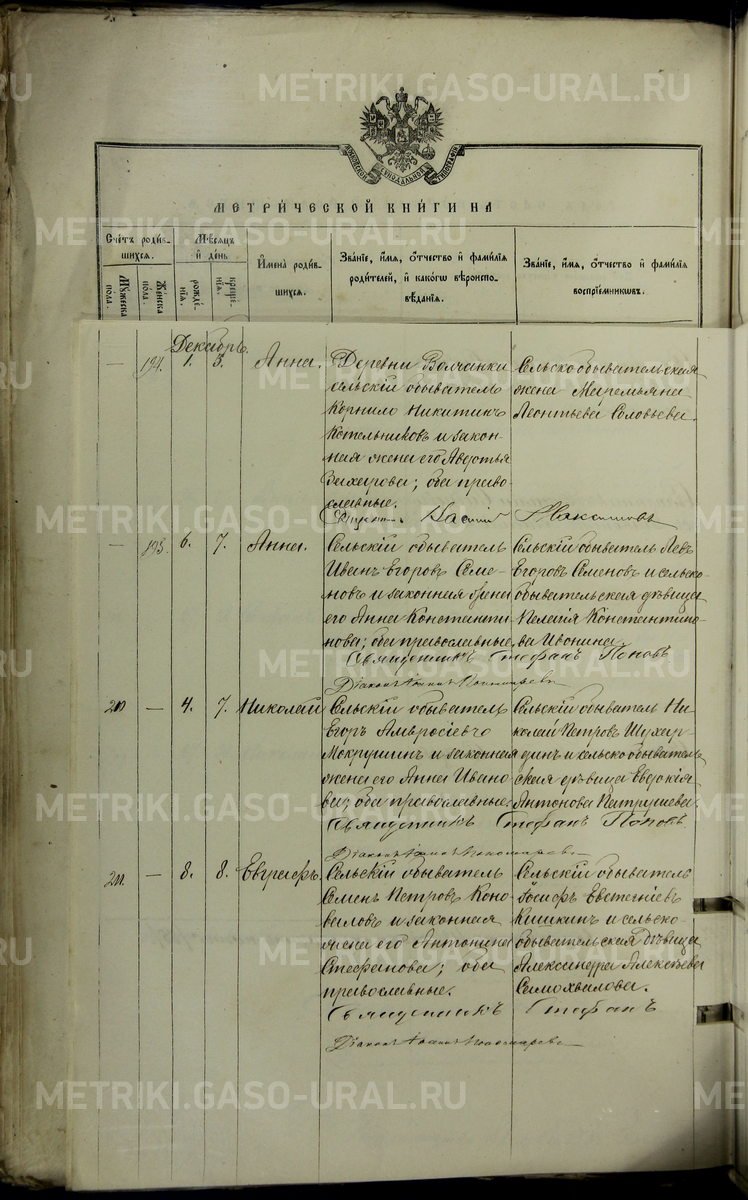 METRIKI.GASO-URAL.RU
МОСКОВСКОЙ СѴНОДАЛЬНОЙ ТИПОГРАФІИ
МЕТРИ́ЧЕСКОЙ КНИ́ГИ НА
Сче́тъ роди́в-
шихся.
Мꙋ́жеска по́ла.
Же́нска по́ла.
Мѣ́сяцъ
и҆ де́нь
рожде́-
нїя.
креще́-
нїя.
И҆мена̀ роди́в-
шихся.
Зва́нїе, и҆́мя, ѻ҆́тчество и҆ фами́лїя
роди́телей, и҆ како́гѡ вѣроиспо-
вѣ́данїя.
Зва́нїе, и҆́мя, ѻ҆́тчество и҆ фами́лїя
воспрїе́мникѡвъ.
Декабрь.
— 194. 1. 3. Анна. Деревни Волчанки
сельскій обыватель
Корнило Никитинъ
Котельниковъ и закон-
ная жена его Авдотья
Захарова; оба право-
славные.
Сельскообывательская
жена Маремьяна
Леонтьева Соловьева.
Василій Максимовъ
— 195. 6. 7. Анна. Сельскій обыватель
Иванъ Егоровъ Семе-
новъ и законная жена
его Анна Константи-
нова; оба православные.
Сельскій обыватель Левъ
Егоровъ Семеновъ и сельско-
обывательская дѣвица
Пелагія Константино-
ва Ивонина.
Священникъ Стефанъ Поповъ
Діаконъ Іоаннъ Пономаревъ
210 — 4. 7. Николай Сельскій обыватель
Егоръ Амвросіевъ
Мокрушинъ и законная
жена его Анна Ивано-
ва; оба православные.
Сельскій обыватель Ни-
колай Петровъ Шухар-
динъ и сельскообыватель-
ская дѣвица Евдокія
Антонова Петрушева.
Священникъ Стефанъ Поповъ
Діаконъ Іоаннъ Пономаревъ
211. — 8. 8. Евграфъ. Сельскій обыватель
Семенъ Петровъ Коно-
валовъ и законная
жена его Антонина
Стефанова; оба
православные.
Сельскій обыватель
Іосифъ Евстегніевъ
Кишкинъ и сельско-
обывательская дѣвица
Александра Алексѣева
Самохвалова.
Священникъ Стефанъ
Діаконъ Іоаннъ Пономаревъ